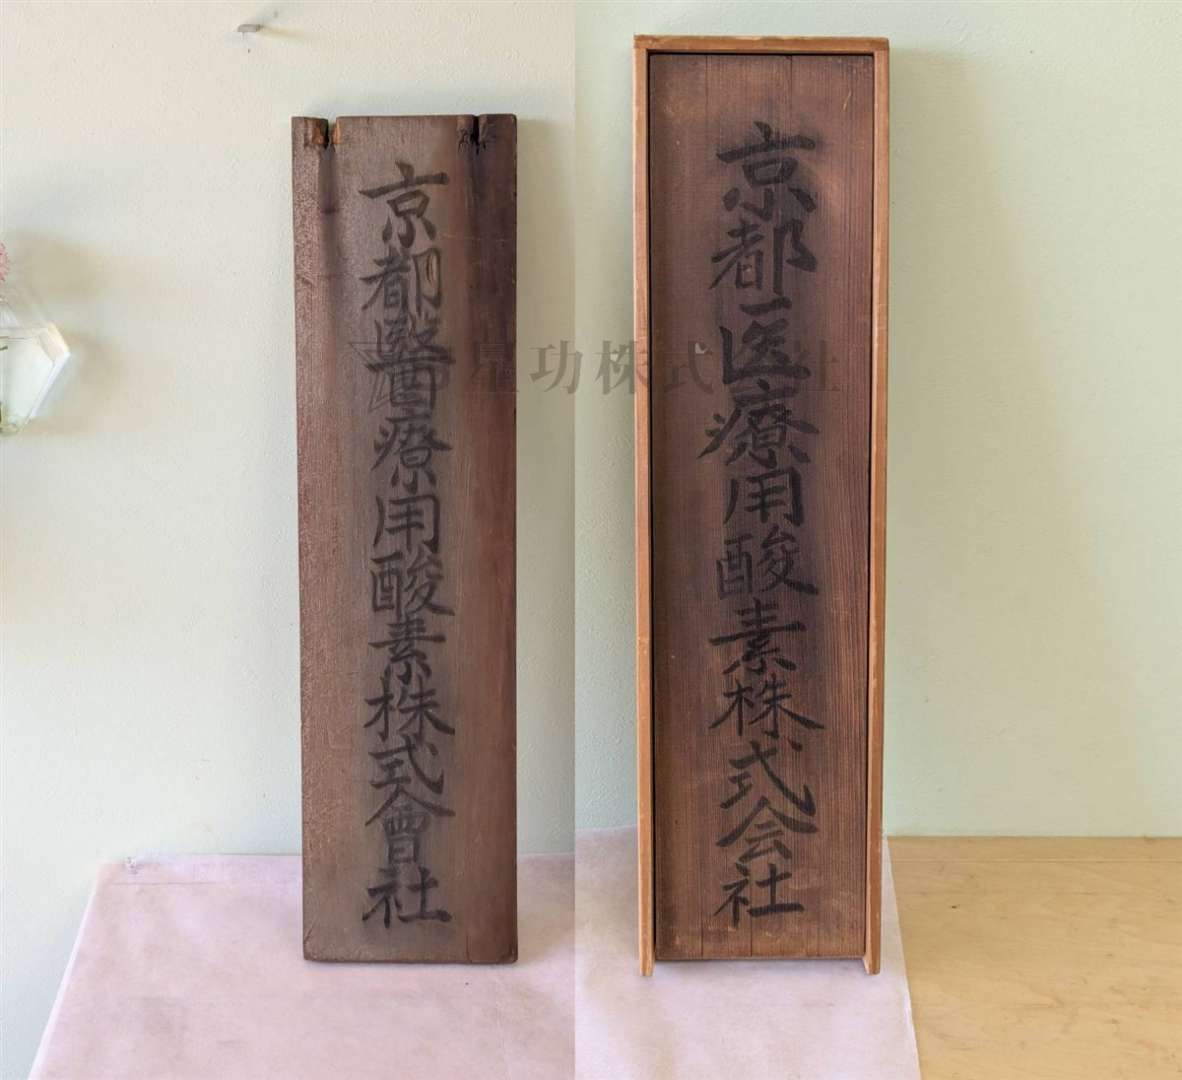 京都醫療用酸素株式會社
京都医療用酸素株式会社
星功株式 社